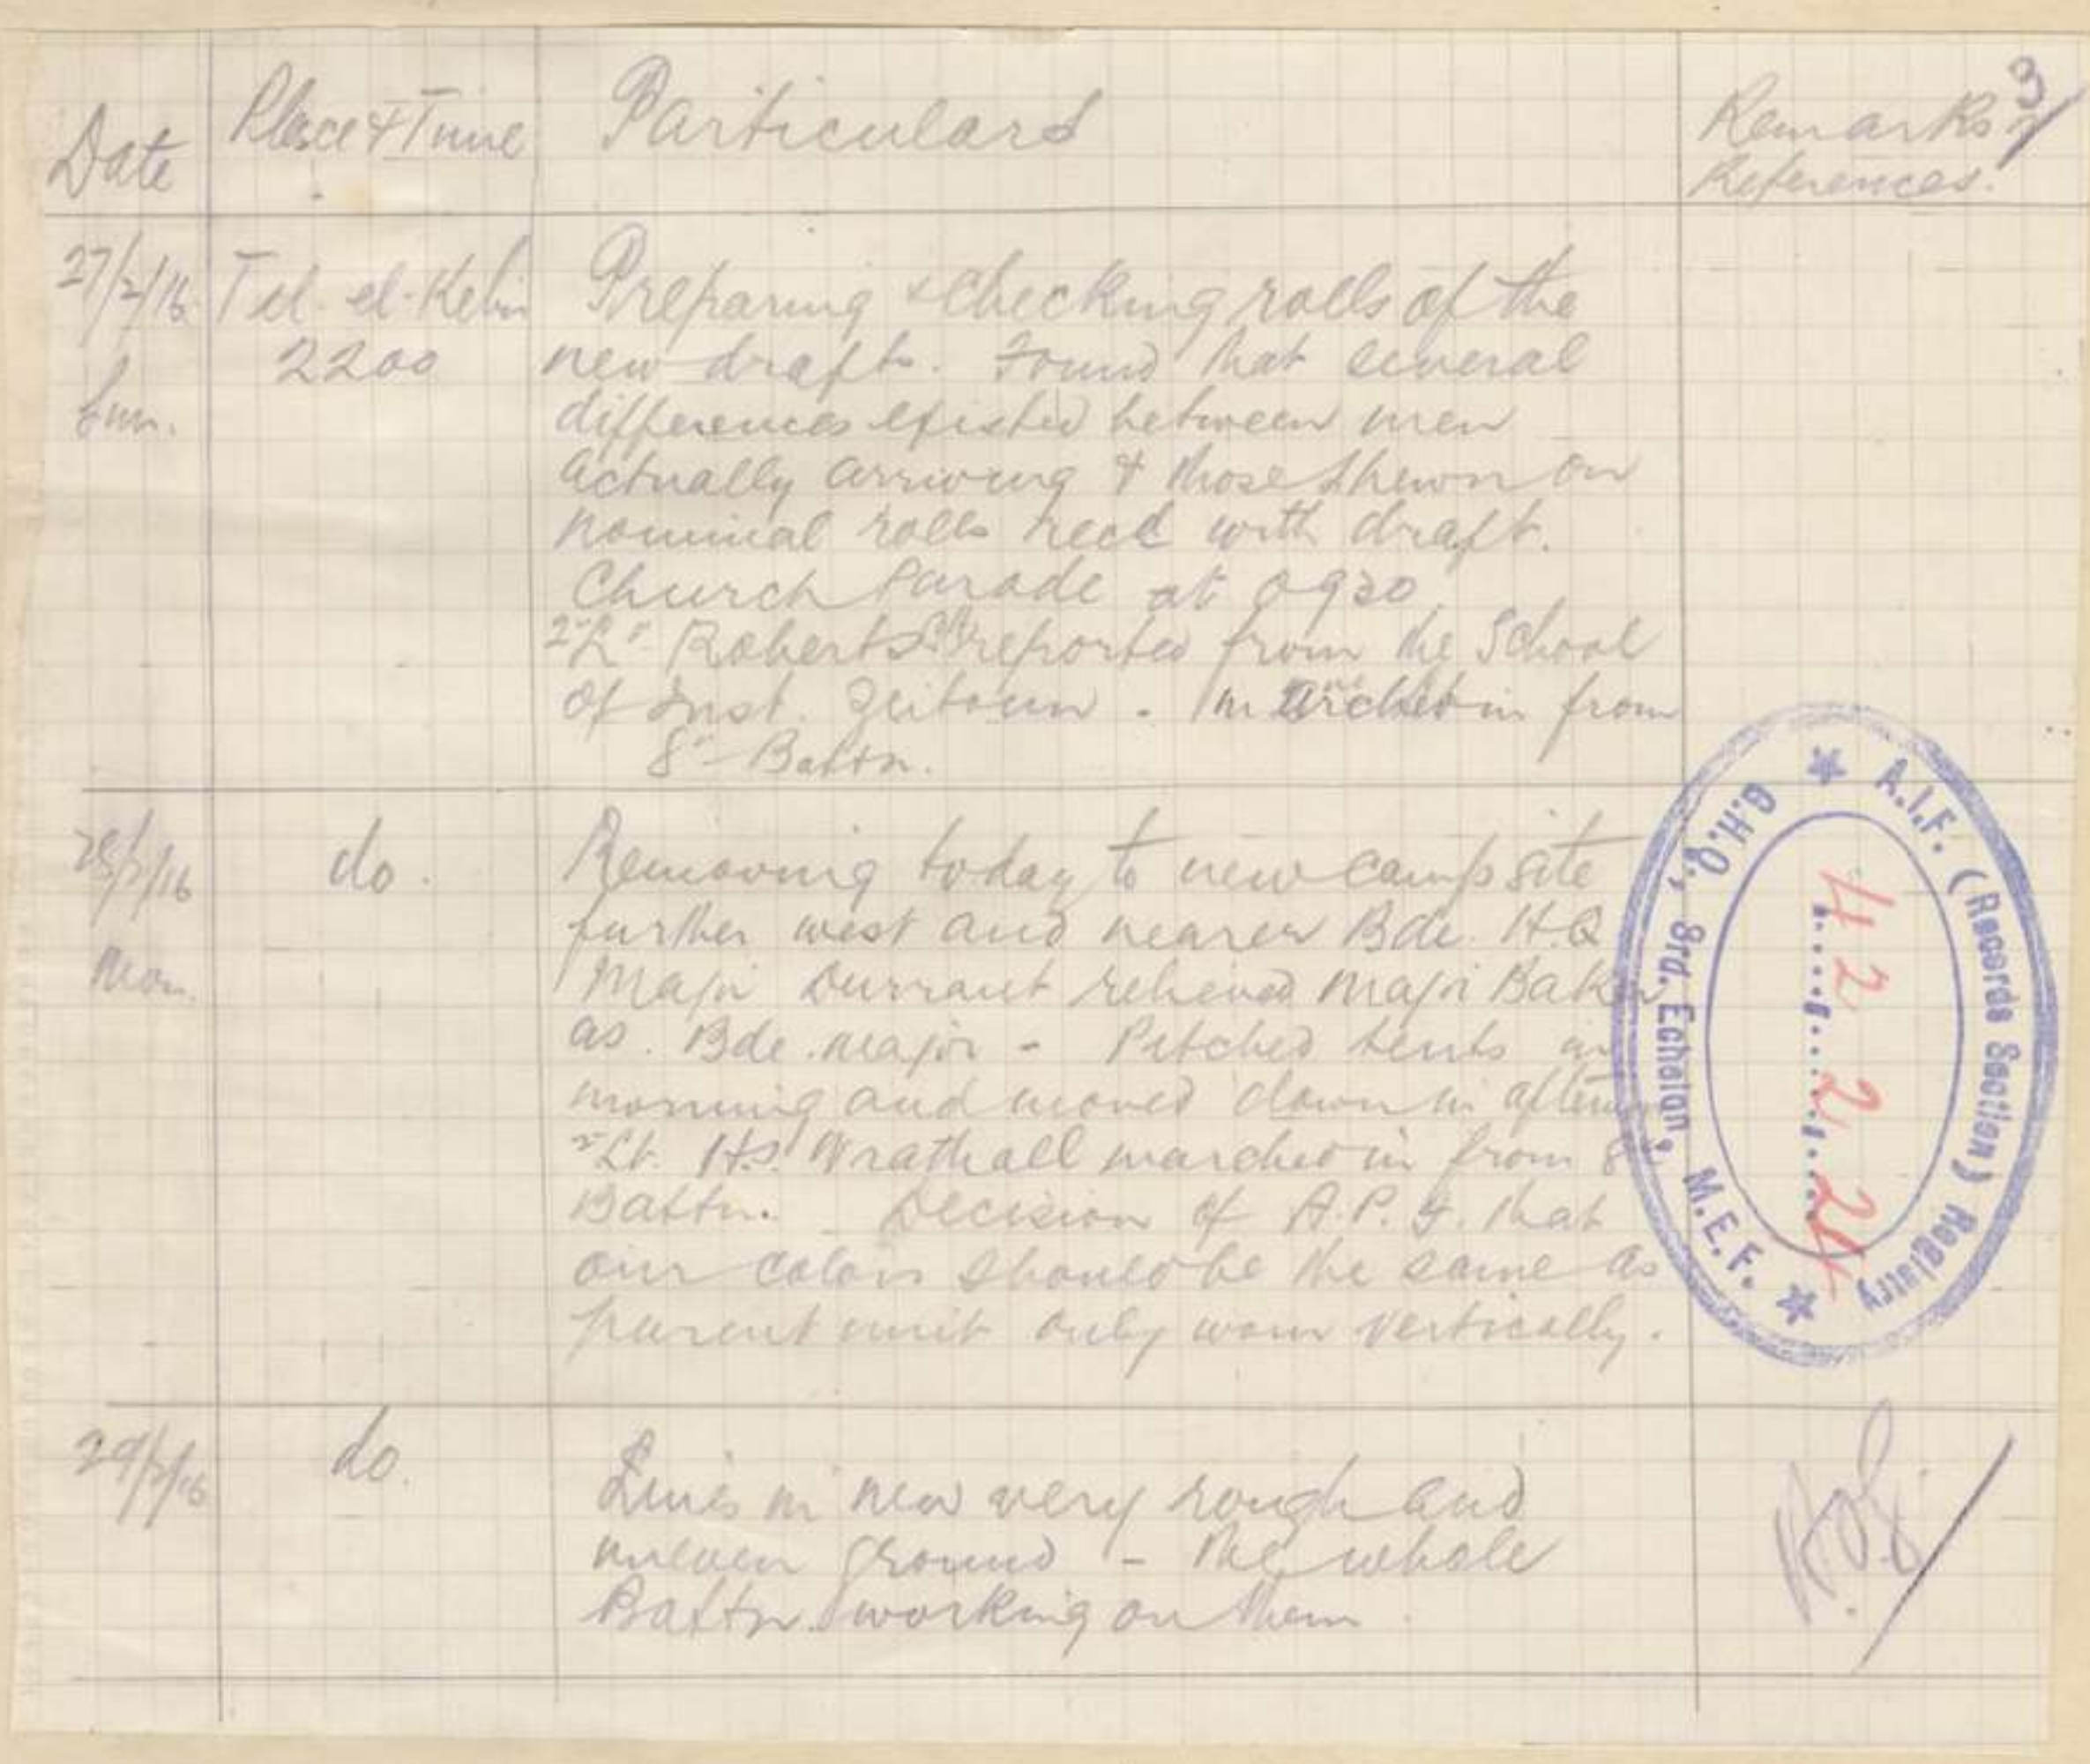 3/
Date Place & Time Particulars Remarks
References.
27/2/16 Tel-el-Kebir Preparing & checking rolls of the
Sun. 2200 new drafts. Found that several
differences existed between men
actually arriving & those shewn on
nominal rolls recd with draft.
Church Parade at 0930
2nd Lt Roberts reported from the School
of Inst. Zeitoun. - marched in from
8th Battn.
28/2/16 do. Removing today to new camp site
Mon. further west and nearer Bde. H.Q
Major Durrant relieved Major Baker
as Bde. Major - Pitched tents in
morning and moved down in afternoon
2nd Lt. H.S. Wrathall marched in from 8th
Battn. Decision of A.P. that
our colors should be the same as
parent unit only worn vertically.
29/2/16 do. Lines in new very rough and
uneven ground - The whole
Battn. working on them
A.I.F. (Records Section) Registry
G.H.Q., 3rd. Echelon, M.E.F.
42 2 24